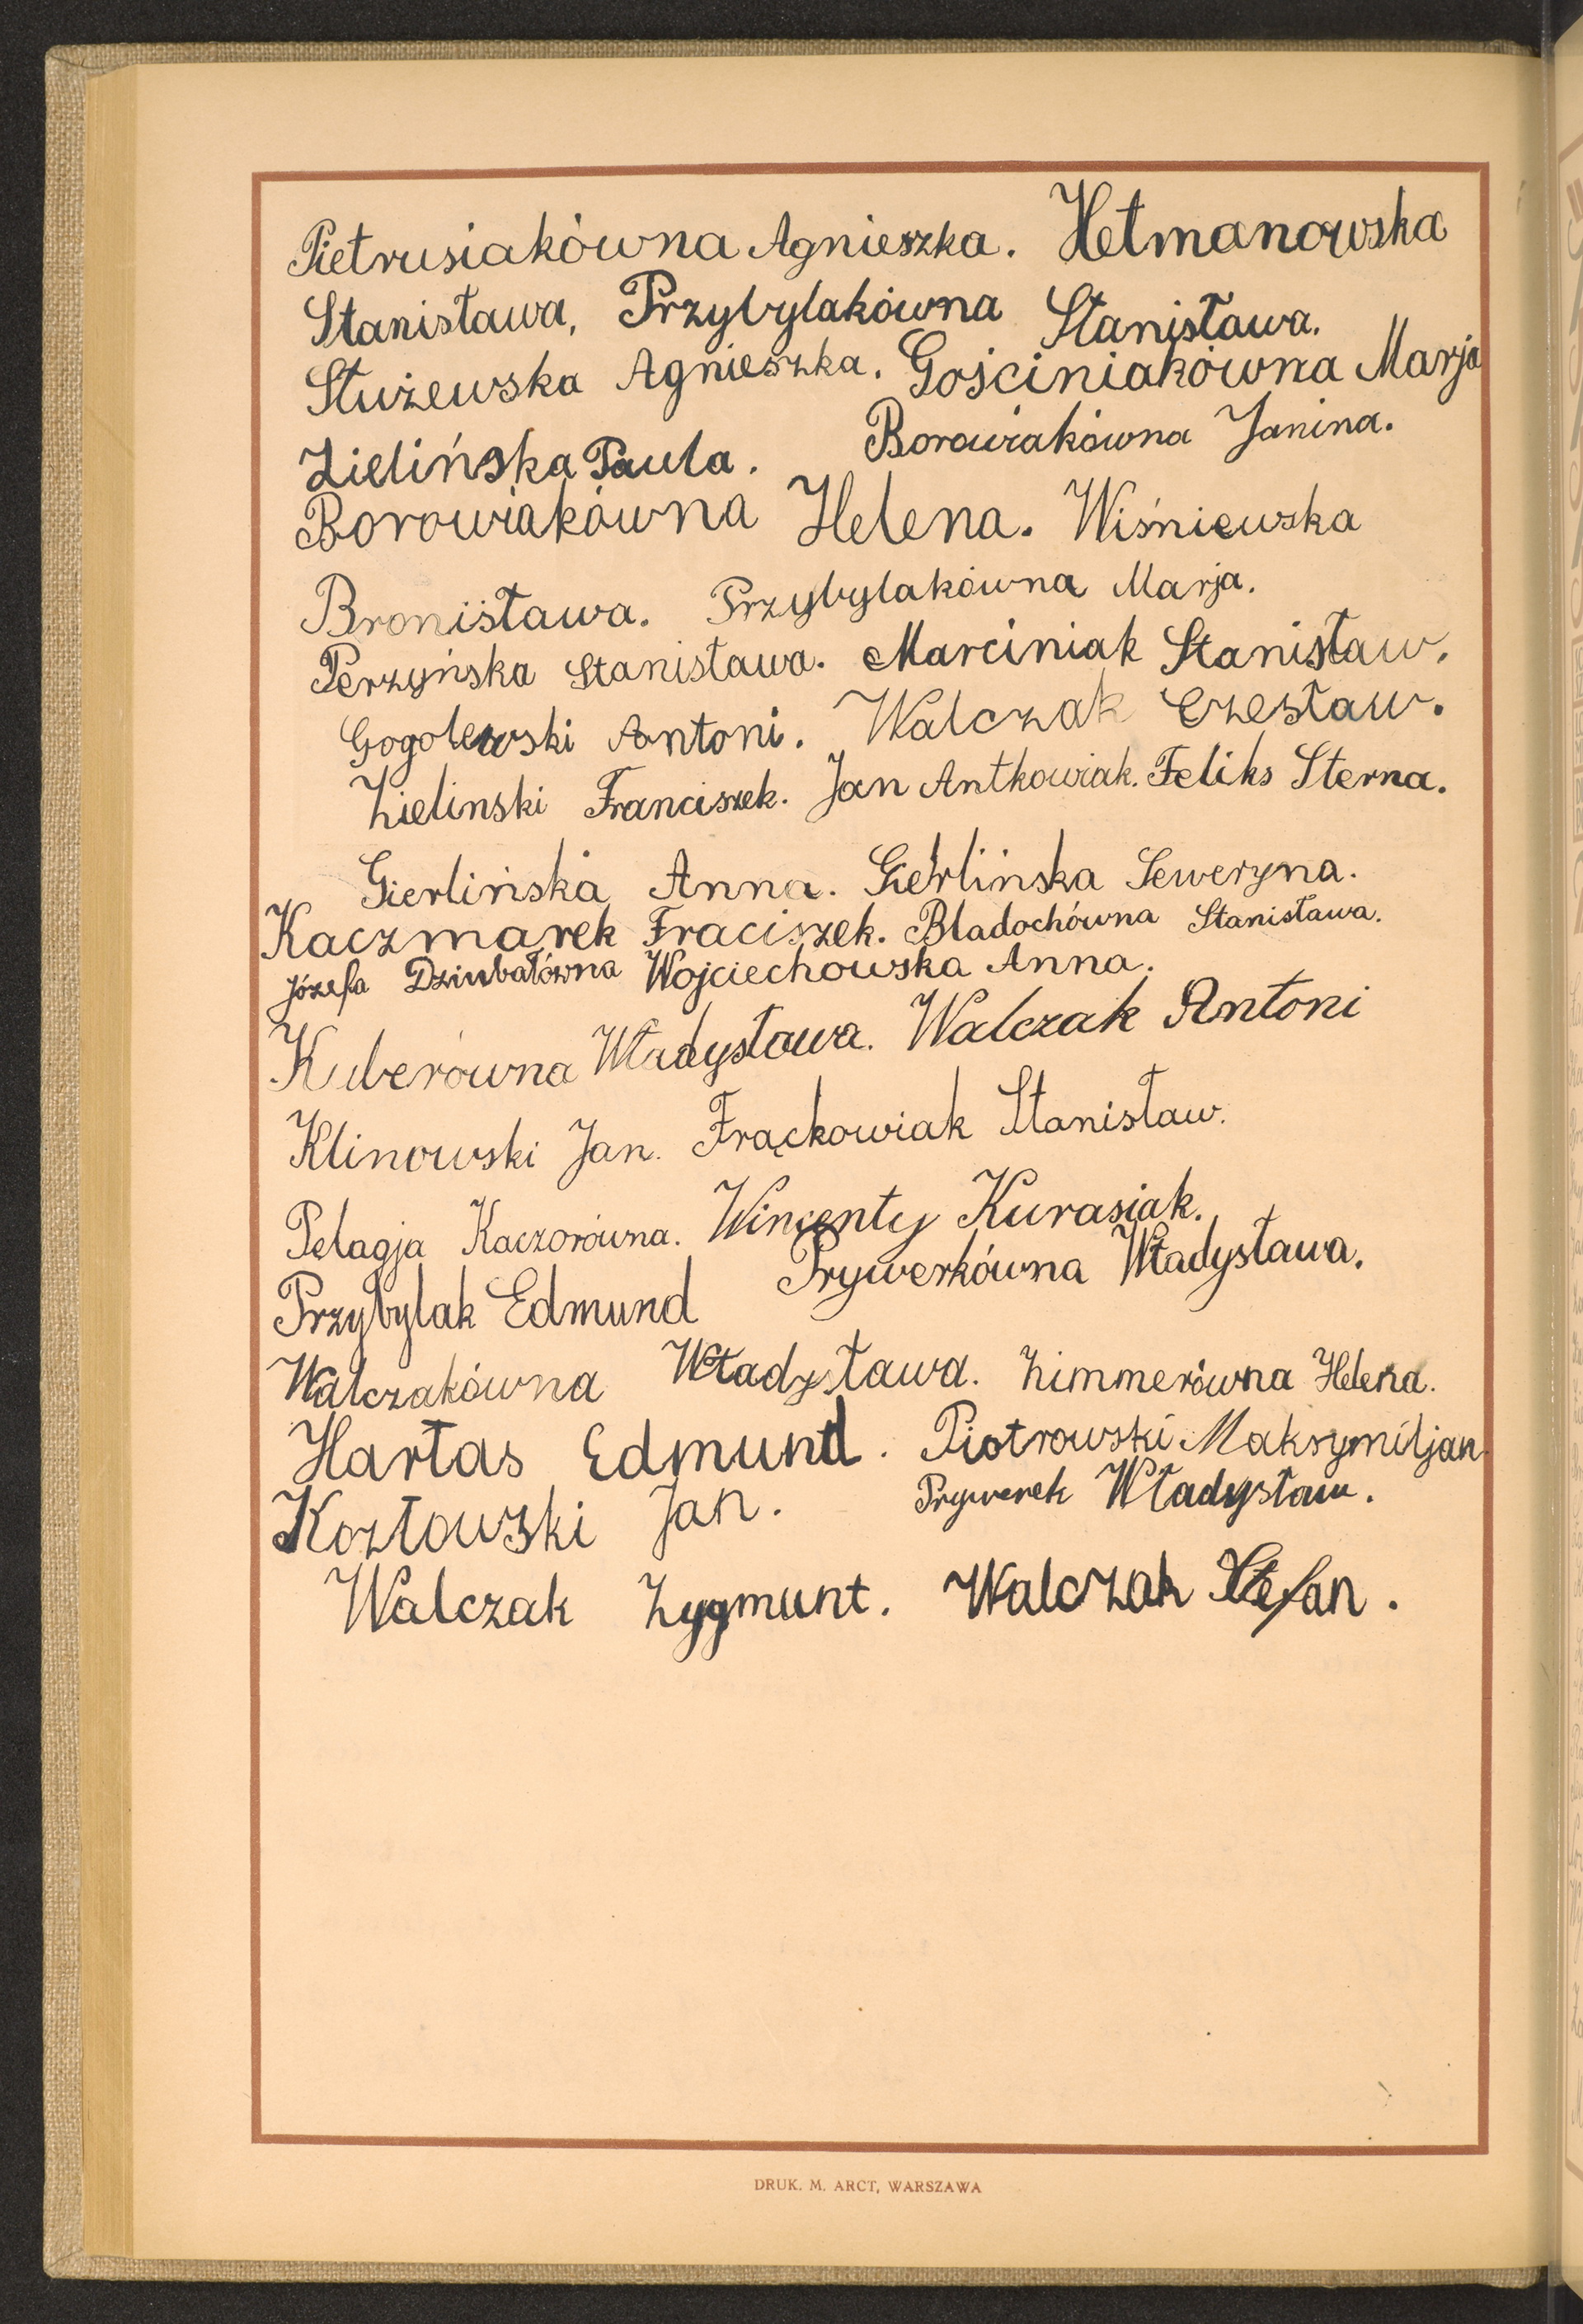 Pietrusiakówna Agnieszka. Hetmanowska
Stanisława, Przybylakówna Stanisława.
Służewska Agnieszka. Gościniakówna Marja
Zielińska Paula. Borowiakówna Janina.
Borowiakówna Helena. Wiśniewska
Bronisława. Przybylakówna Marja.
Perzyńska Stanisława. Marciniak Stanisław.
Gogolewski Antoni. Walczak Czesław.
Zielinski Franciszek. Jan Antkowiak. Feliks Sterna.
Gierlińska Anna. Gierlińska Seweryna.
Kaczmarek Fraciszek. Bladochówna Stanisława.
Józefa Dziubałówna Wojciechowska Anna.
Kuberówna Władysława. Walczak Antoni
Klinowski Jan. Frąckowiak Stanisław.
Pelagja Kaczorówna. Wincenty Kurasiak.
Przybylak Edmund Prywerkówna Władysława.
Walczakówna Władysława. Zimmerówna Helena.
Hartas Edmund. Piotrowski Maksymiljan
Kozłowski Jan. Prywerek Władysław.
Walczak Zygmunt. Walczak Stefan.
DRUK. M. ARCT, WARSZAWA